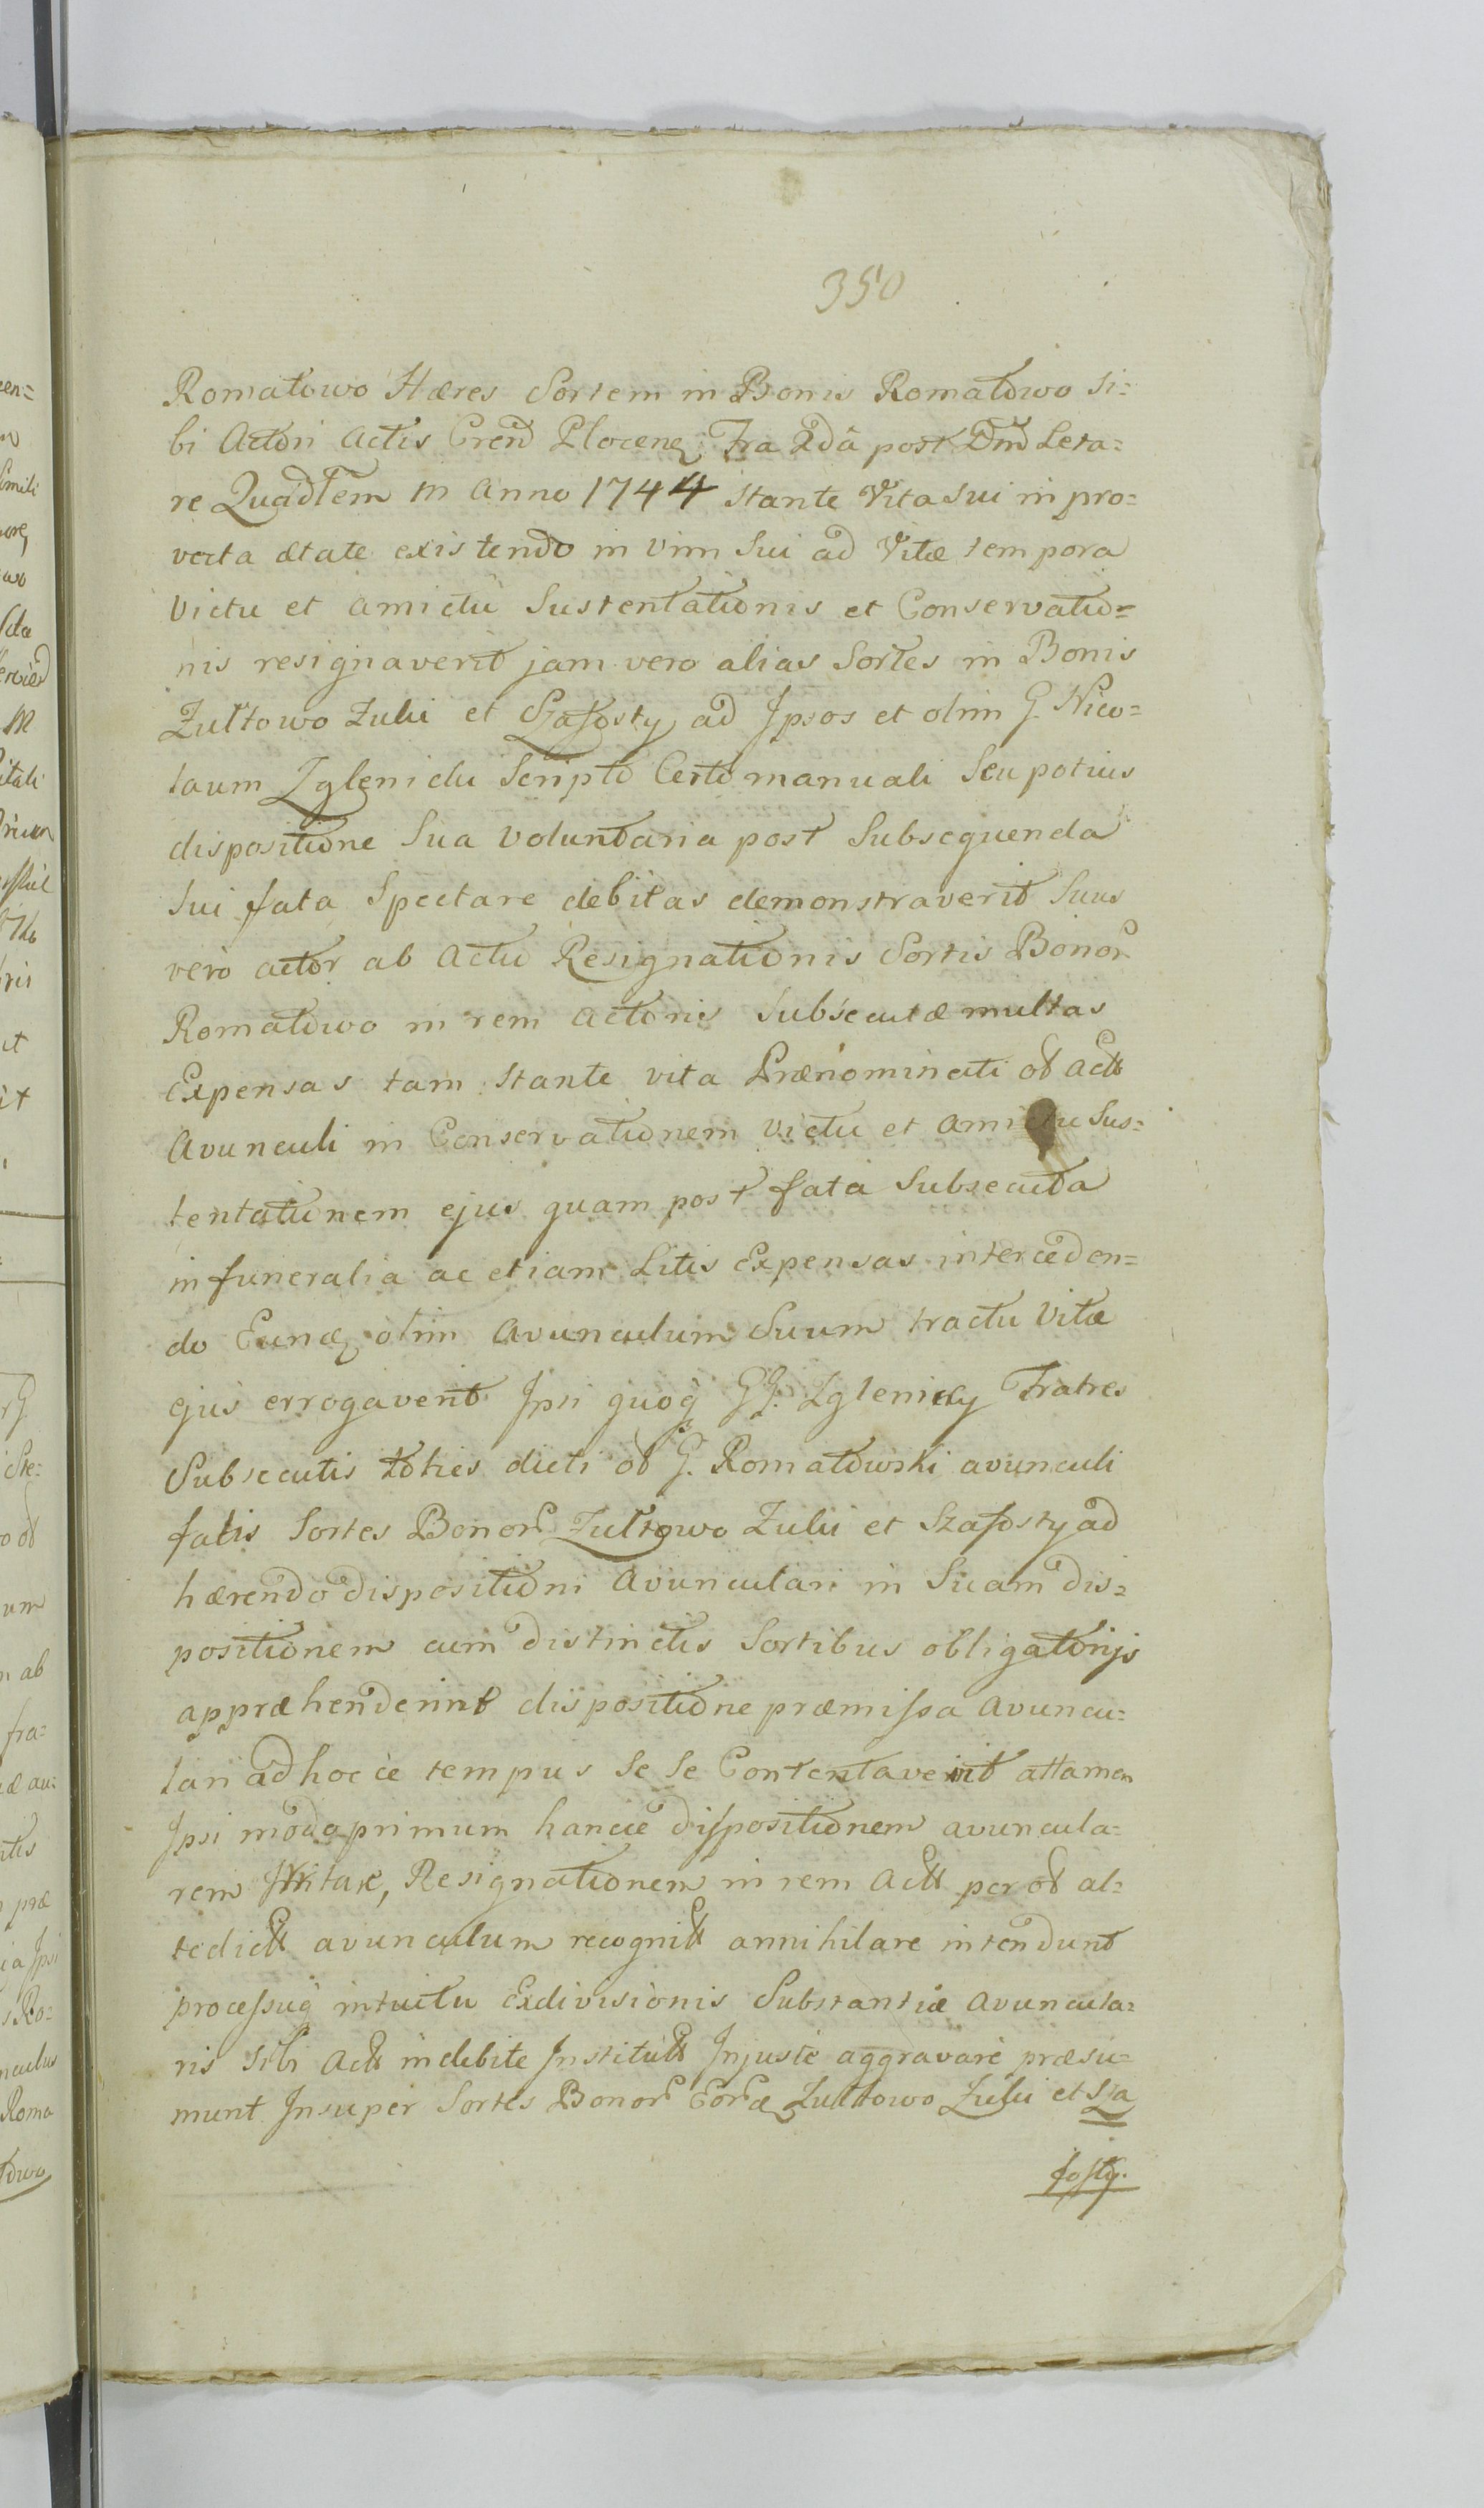 350
Romatowo Hæres Sortem in Bonis Romatowo si=
bi Actori Actis Cren̄d Plocen̄ Fra 2dâ post Dn̄d Leta=
re Quadlem in Anno 1744 stante Vita sui in pro=
vecta ætate existendo in vim sui ad Vitæ tempora
Victu et amictu Sustentationis et Conservatio=
nis resignaverit jam vero alias Sortes in Bonis
Zultowo Zulii et Szafosty ad Ipsos et olim G. Nico=
laum Zglenicki Scripto Certo manuali Seu potius
dispositione Sua Voluntaria post Subsequenda
sui fata Spectare debitas demonstraverit Suus
vero actor ab Actu Resignationis Sortis Bonor
Romatowo in rem actoris Subsecutæ multas
Expensas tam stante vita Prænominati ol Actt
Avunculi in Conservationem Victu et amictu Sus=
tentationem ejus quam post fata Subsecuta
in funeralia ac etiam Litis Expensas interceden=
do olim Avunculum Suum tractu Vitæ
ejus errogaverit Ipsi quoq GG. Zglenicy Fratres
Subsecutis toties dicti ol G. Romatowski avunculi
fatis Sortes Bonor Zultowo Zulii et Szafosty ad
hærendo dispositioni Avunculari in Suam dis=
positionem cum distinctis Sortibus obligatorijs
appræhenderint dispositione præmissa avuncu=
lari adhocce tempus se se Contentaverit attamen
Ipsi modo primum hancce dispositionem avuncula=
rem Irritare, Resignationem in rem Actt per ol al=
tedictt avunculum recognitt annihilare intendunt
processuq intuitu Exdivisionis Substantiæ Avuncula=
ris sibi Actt indebite Institutt Injuste aggravare præsu=
munt Insuper Sortes Bonor Zultowo Zulii et Sza
fosty.